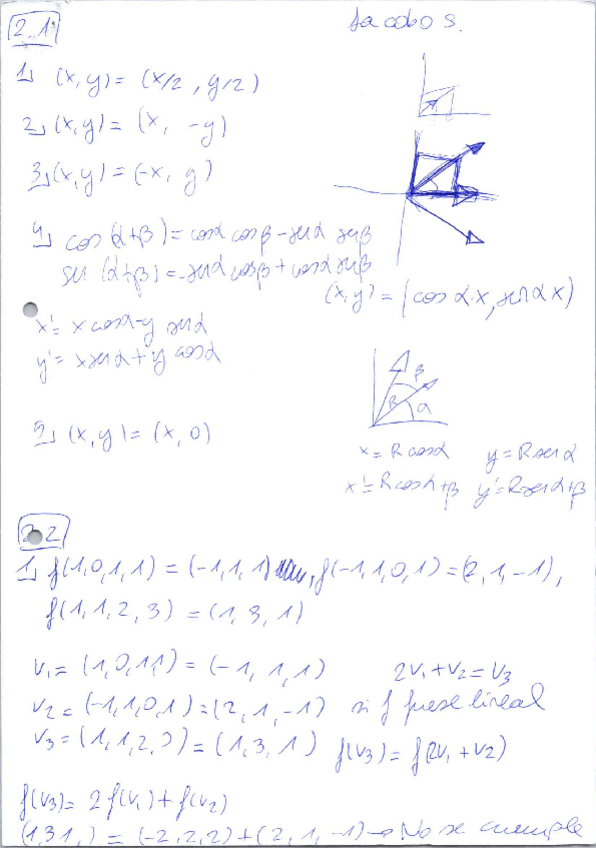 2.1
Jacobo S.
1) (x,y) = (x/2, y/2)
2) (x,y) = (x, -y)
3) (x,y) = (-x, y)
4) cos(α+β) = cosα cosβ - senα senβ
sen(α+β) = senα cosβ + cosα senβ
(x,y) = (cos α·x, sen α x)
x' = x cosα - y senα
y' = x senα + y cosα
β
β
α
5) (x,y) = (x, 0)
x = R cosα y = R senα
x' = R cosα+β y' = R senα+β
2.2
1) f(1,0,1,1) = (-1,1,1), f(-1,1,0,1) = (2,1,-1),
f(1,1,2,3) = (1,3,1)
v1 = (1,0,1,1) = (-1,1,1) 2v1 + v2 = v3
v2 = (-1,1,0,1) = (2,1,-1) si f fuese lineal
v3 = (1,1,2,3) = (1,3,1) f(v3) = f(2v1 + v2)
f(v3) = 2f(v1) + f(v2)
(1,3,1,) = (-2,2,2) + (2,1,-1) → No se cumple